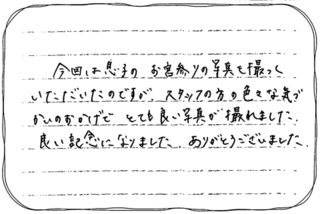 今回は息子の お宮参りの写真を撮って
いただいたのですが、スタッフの方の色々な気づ
かいのおかげで とても良い写真が撮れました。
良い記念になりました。ありがとうございました。